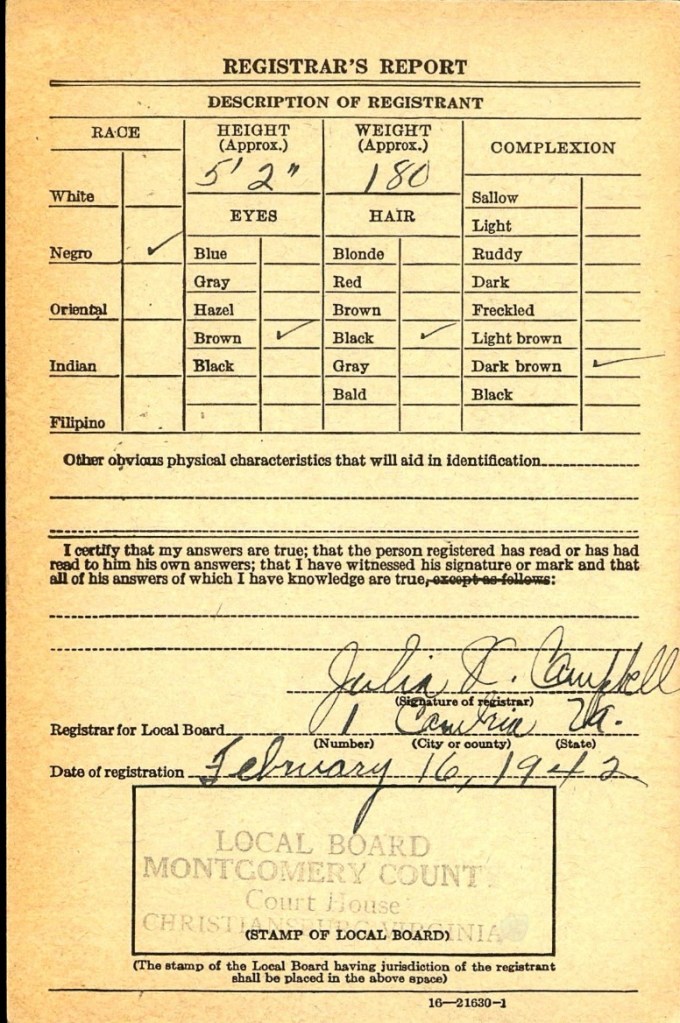 REGISTRAR'S REPORT
DESCRIPTION OF REGISTRANT
RACE
White
Negro ✓
Oriental
Indian
Filipino
HEIGHT
(Approx.)
5' 2"
WEIGHT
(Approx.)
180
COMPLEXION
EYES
Blue
Gray
Hazel
Brown ✓
Black
HAIR
Blonde
Red
Brown
Black ✓
Gray
Bald
Sallow
Light
Ruddy
Dark
Freckled
Light brown
Dark brown ✓
Black
Other obvious physical characteristics that will aid in identification
I certify that my answers are true; that the person registered has read or has had
read to him his own answers; that I have witnessed his signature or mark and that
all of his answers of which I have knowledge are true, except as follows:
Julia K. Campbell
(Signature of registrar)
Registrar for Local Board 1 Cambria Va.
(Number) (City or county) (State)
Date of registration February 16, 1942
LOCAL BOARD
MONTGOMERY COUNTY
Court House
CHRISTIANSBURG VIRGINIA
(STAMP OF LOCAL BOARD)
(The stamp of the Local Board having jurisdiction of the registrant
shall be placed in the above space)
16—21630-1